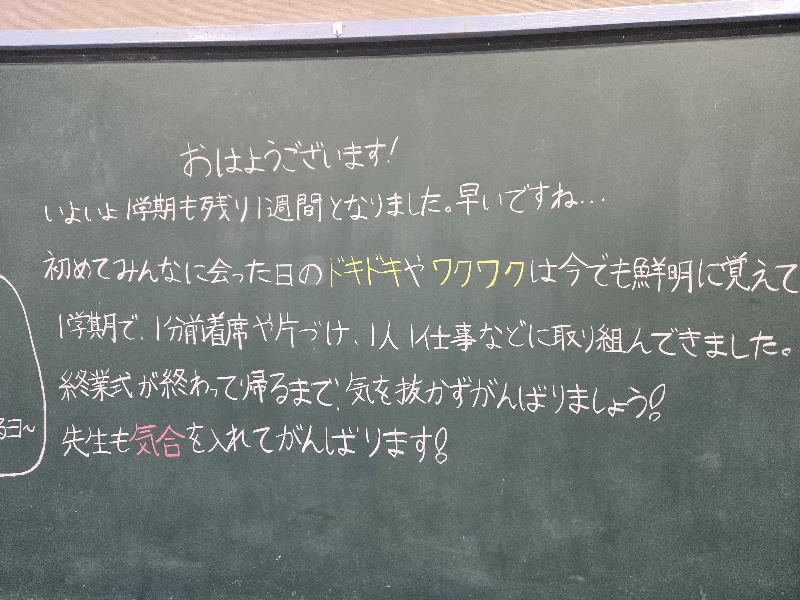 おはようございます!
いよいよ1学期も残り1週間となりました。早いですね…
初めてみんなに会った日のドキドキやワクワクは今でも鮮明に覚えて
1学期で、1分前着席や片づけ、1人1仕事などに取り組んできました。
終業式が終わって帰るまで、気を抜かずがんばりましょう!
先生も気合を入れてがんばります!
る日~